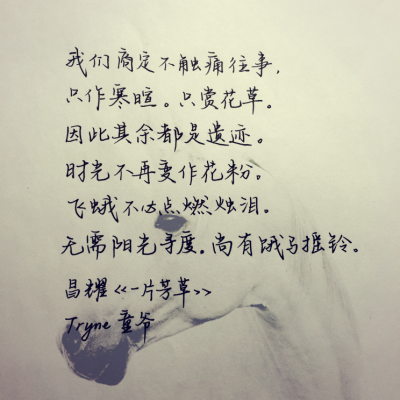 我们商定不触痛往事,
只作寒暄。只赏花草。
因此其余都是遗迹。
时光不再变作花粉。
飞蛾不必点燃烛泪。
无需阳光寻度。尚有饿马摇铃。
昌耀<<一片芳草>>
Tryne 童爷